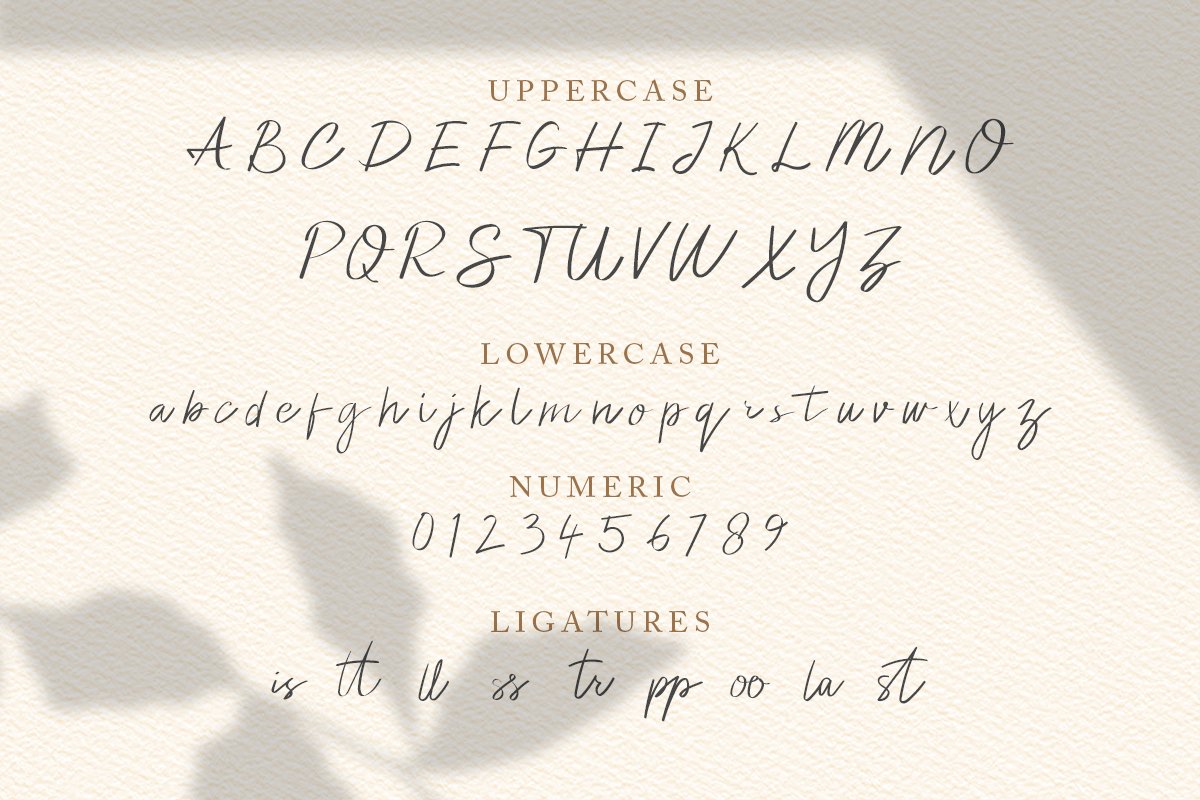 UPPERCASE
A B C D E F G H I J K L M N O
P Q R S T U V W X Y Z
LOWERCASE
a b c d e f g h i j k l m n o p q r s t u v w x y z
NUMERIC
0 1 2 3 4 5 6 7 8 9
LIGATURES
is tt ll ss tr pp oo la st